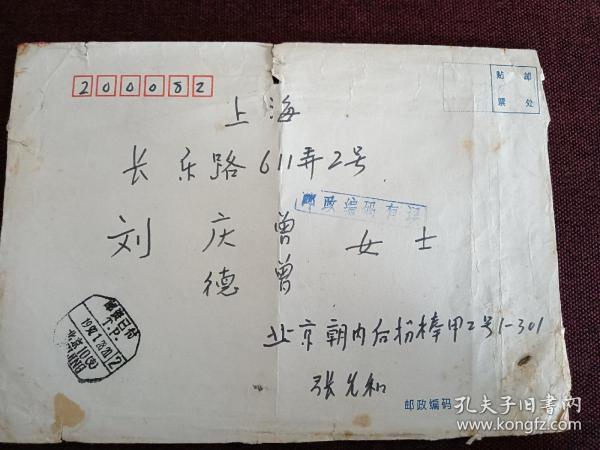 200082
贴 邮
票 处
上海
长乐路611弄2号
邮政编码有误
刘 庆曾 女士
德曾
邮资已付
T.P.
北京10(支)
BEIJING
北京朝内后拐棒甲2号1-301
张允和
邮政编码
孔夫子旧书网
www.kongfz.com